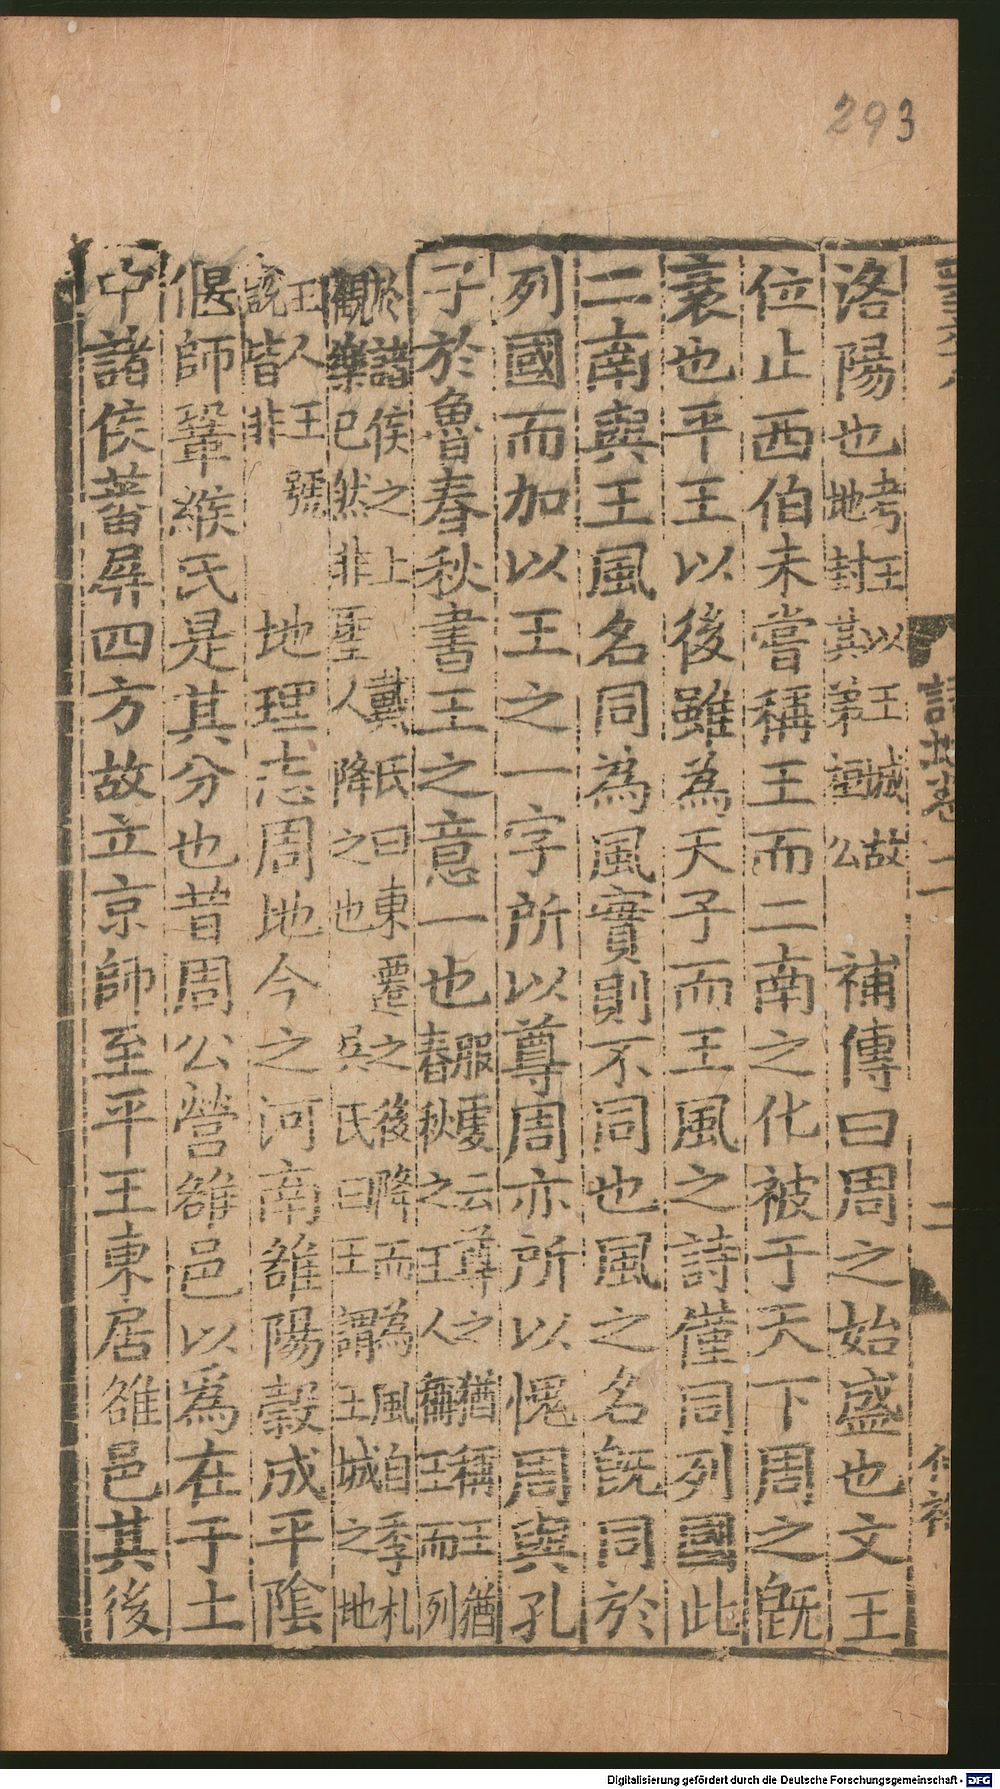 293
洛陽也考王以王城故地封其弟桓公補傳曰周之始盛也文王
位止西伯未嘗稱王而二南之化被于天下周之旣
衰也平王以後雖為天子而王風之詩僅同列國此
二南與王風名同為風實則不同也風之名旣同於
列國而加以王之一字所以尊周亦所以愧周與孔
子於魯春秋書王之意一也服䖍云尊之猶稱王猶春秋之王人稱王而列
於諸侯之上戴氏曰東遷之後降而為風自季札觀樂已然非聖人降之也吳氏曰王謂王城之地
王人王號說皆非地理志周地今之河南雒陽穀成平陰
偃師鞏緱氏是其分也昔周公營雒邑以爲在于土
中諸侯蕃屏四方故立京師至平王東居雒邑其後
詩地卷一
二
Digitalisierung gefördert durch die Deutsche Forschungsgemeinschaft - DFG